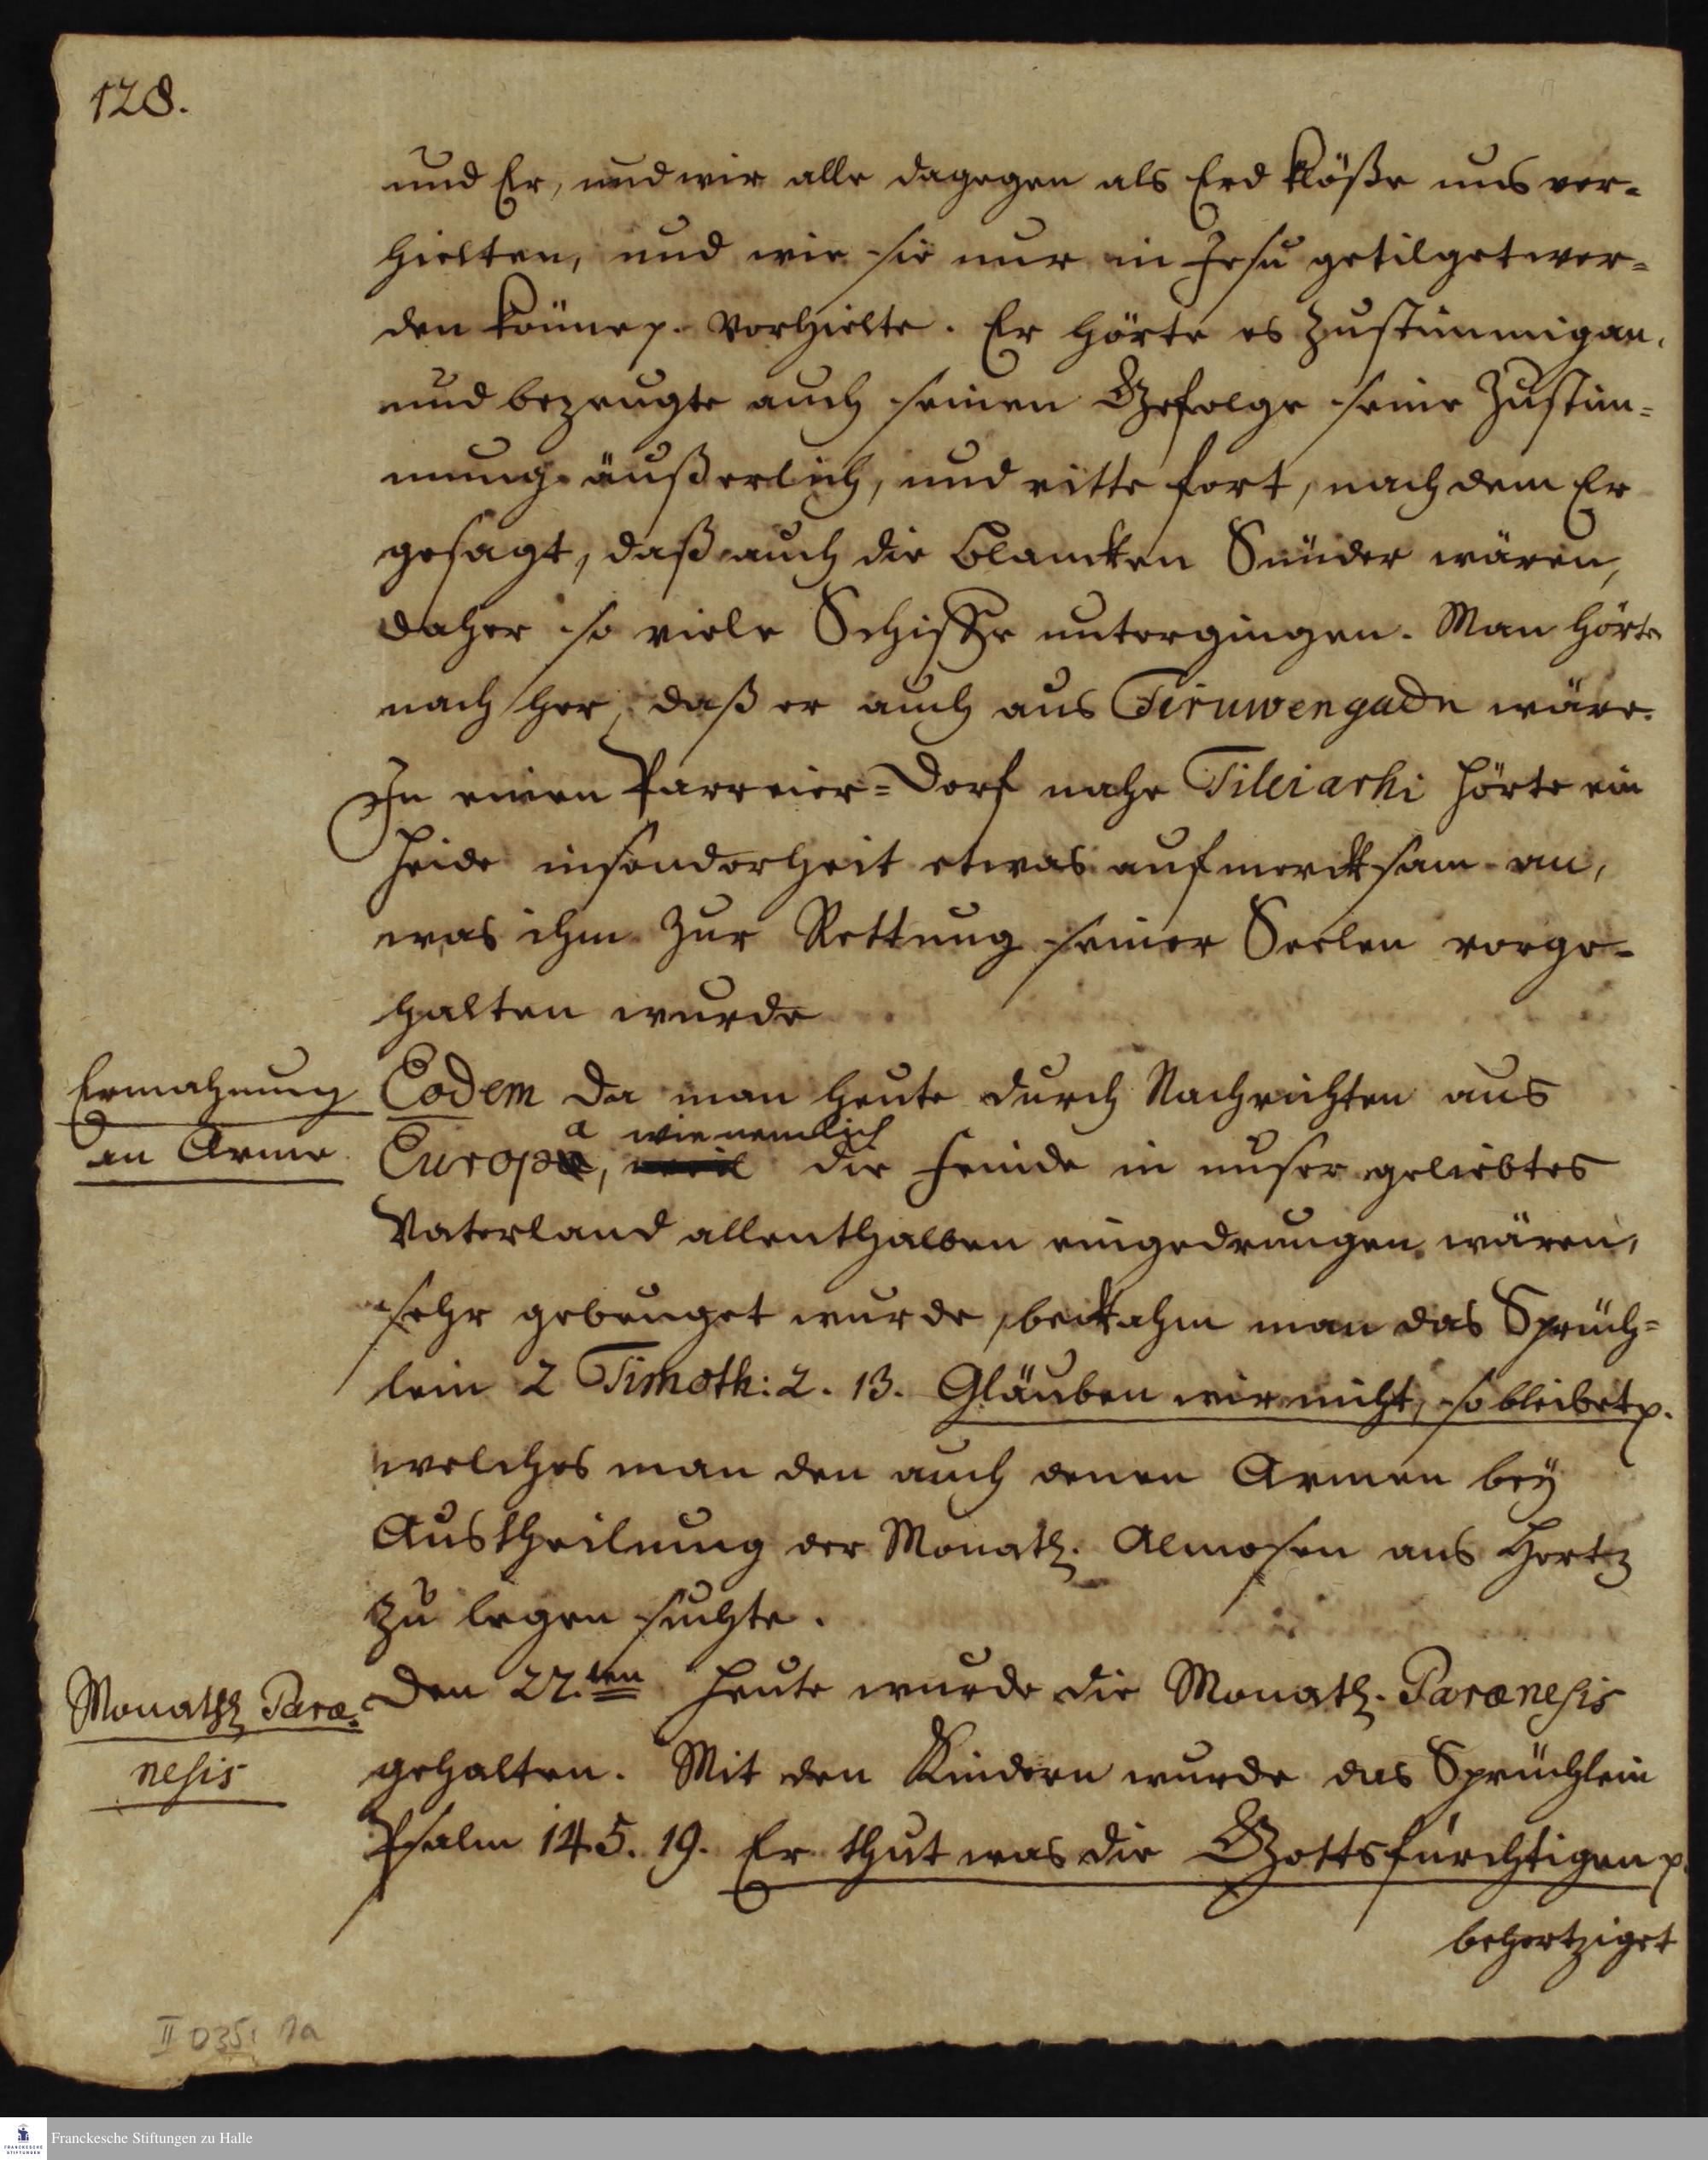 128.
und Er, und wir alle dagegen als Erd klöße uns ver-
hielten, und wie sie nur in Jesu getilget wer-
den könne p. vorhielte. Er hörte es zustimmig an,
und bezeugte auch seinen Gefolge seine Zustim-
mung äußerlich, und ritte fort, nach dem Er
gesagt, daß auch die Blancken Sünder wären,
daher so viele Schiffe untergingen. Man hörte
nach her, daß er auch aus Tiruwengadu wäre.
In einen Parreier-Dorf nahe Tileiarhi hörte ein
Heide insonderheit etwas aufmercksam an,
was ihm zur Rettung seiner Seelen vorge-
halten wurde
Ermahnung
an Arme.
Eodem Da man heute durch Nachrichten aus
a wie nemlich
Europa, weil die Feinde in unser geliebtes
Vaterland allenthalben eingedrungen wären,
sehr gebeuget wurde, bekahm man das Sprüch-
lein 2 Timoth: 2. 13. Gläuben wir nicht, so bleibet p.
welches man den auch denen Armen bey
Austheilung der Monatl. Almosen ans Hertz
zu legen suchte.
Monathl Paræ-
nesis
Den 22.ten Heute wurde die Monatl. Parænesis
gehalten. Mit den Kindern wurde das Sprüchlein
Psalm 145. 19. Er thut was die Gottsfürchtigen p.
behertziget
II D35: 1a
Franckesche Stiftungen zu Halle